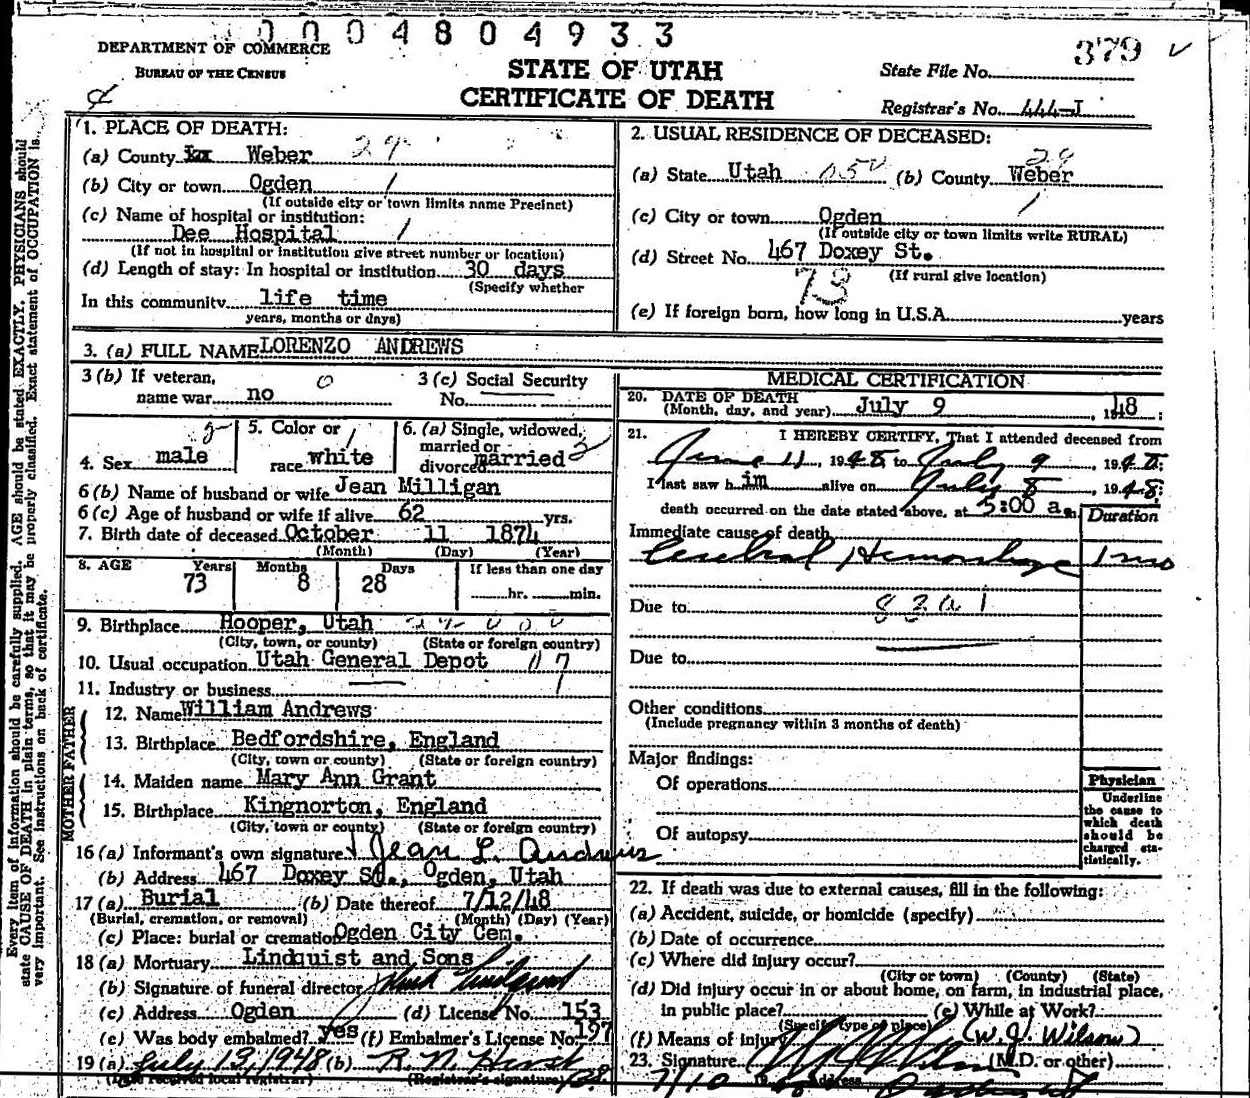 0004804933
379
DEPARTMENT OF COMMERCE
BUREAU OF THE CENSUS
STATE OF UTAH
CERTIFICATE OF DEATH
State File No.
Registrar's No. 444-J
1. PLACE OF DEATH:
(a) County Weber 29
(b) City or town Ogden 1
(If outside city or town limits name Precinct)
(c) Name of hospital or institution:
Dee Hospital 1
(If not in hospital or institution give street number or location)
(d) Length of stay: In hospital or institution 30 days
(Specify whether
In this community life time
years, months or days)
2. USUAL RESIDENCE OF DECEASED:
29
(a) State Utah 050 (b) County Weber
1
(c) City or town Ogden
(If outside city or town limits write RURAL)
(d) Street No. 467 Doxey St.
73 (If rural give location)
(e) If foreign born, how long in U.S.A. years
3. (a) FULL NAME LORENZO ANDREWS
3 (b) If veteran,
name war no 0
3 (c) Social Security
No.
4. Sex male 2
5. Color or
race white 1
6. (a) Single, widowed,
married or
divorced married 2
6 (b) Name of husband or wife Jean Milligan
6 (c) Age of husband or wife if alive 62 yrs.
7. Birth date of deceased October 11 1874
(Month) (Day) (Year)
8. AGE Years Months Days If less than one day
73 8 28 hr. min.
9. Birthplace Hooper, Utah
(City, town, or county) (State or foreign country)
10. Usual occupation Utah General Depot 117
11. Industry or business 1
FATHER
12. Name William Andrews
13. Birthplace Bedfordshire, England
(City, town or county) (State or foreign country)
MOTHER
14. Maiden name Mary Ann Grant
15. Birthplace Kingnorton, England
(City, town or county) (State or foreign country)
16 (a) Informant's own signature Jean L. Andrews
(b) Address 467 Doxey St., Ogden, Utah
17 (a) Burial (b) Date thereof 7/12/48
(Burial, cremation, or removal) (Month) (Day) (Year)
(c) Place: burial or cremation Ogden City Cem.
18 (a) Mortuary Lindquist and Sons
(b) Signature of funeral director
(c) Address Ogden (d) License No. 153
(e) Was body embalmed? yes (f) Embalmer's License No. 197
19 (a) July 13, 1948 (b) R. N. Hirst
(Date received local registrar) (Registrar's signature)
MEDICAL CERTIFICATION
20. DATE OF DEATH
(Month, day, and year) July 9, 1948
21. I HEREBY CERTIFY, That I attended deceased from
June 11, 1948 to July 9, 1948;
I last saw him alive on July 8, 1948;
death occurred on the date stated above, at 5:00 a.m
Duration
Immediate cause of death
Cerebral Hemorrhage 1 mo
Due to 83a1
Due to
Other conditions
(Include pregnancy within 3 months of death)
Major findings:
Of operations
Of autopsy
Physician
Underline
the cause to
which death
should be
charged sta-
tistically.
22. If death was due to external causes, fill in the following:
(a) Accident, suicide, or homicide (specify)
(b) Date of occurrence
(c) Where did injury occur?
(City or town) (County) (State)
(d) Did injury occur in or about home, on farm, in industrial place,
in public place? (e) While at Work?
(Specify type of place)
(f) Means of injury (W. J. Wilson)
23. Signature (M.D. or other)
7/10 Address
Every item of information should be carefully supplied. AGE should be stated EXACTLY. PHYSICIANS should
state CAUSE OF DEATH in plain terms, so that it may be properly classified. Exact statement of OCCUPATION is
very important. See instructions on back of certificate.